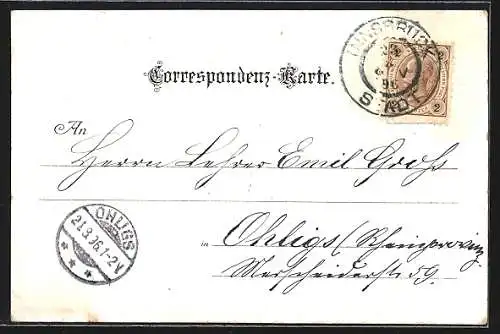 INNSBRUCK
96
STADT
2 2
Correspondenz-Karte.
An
Herrn Lehrer Emil Groß
in Ohligs (Rheinprovinz)
Merscheiderstr 59.
OHLIGS
21.8.96.1-2V
* * *